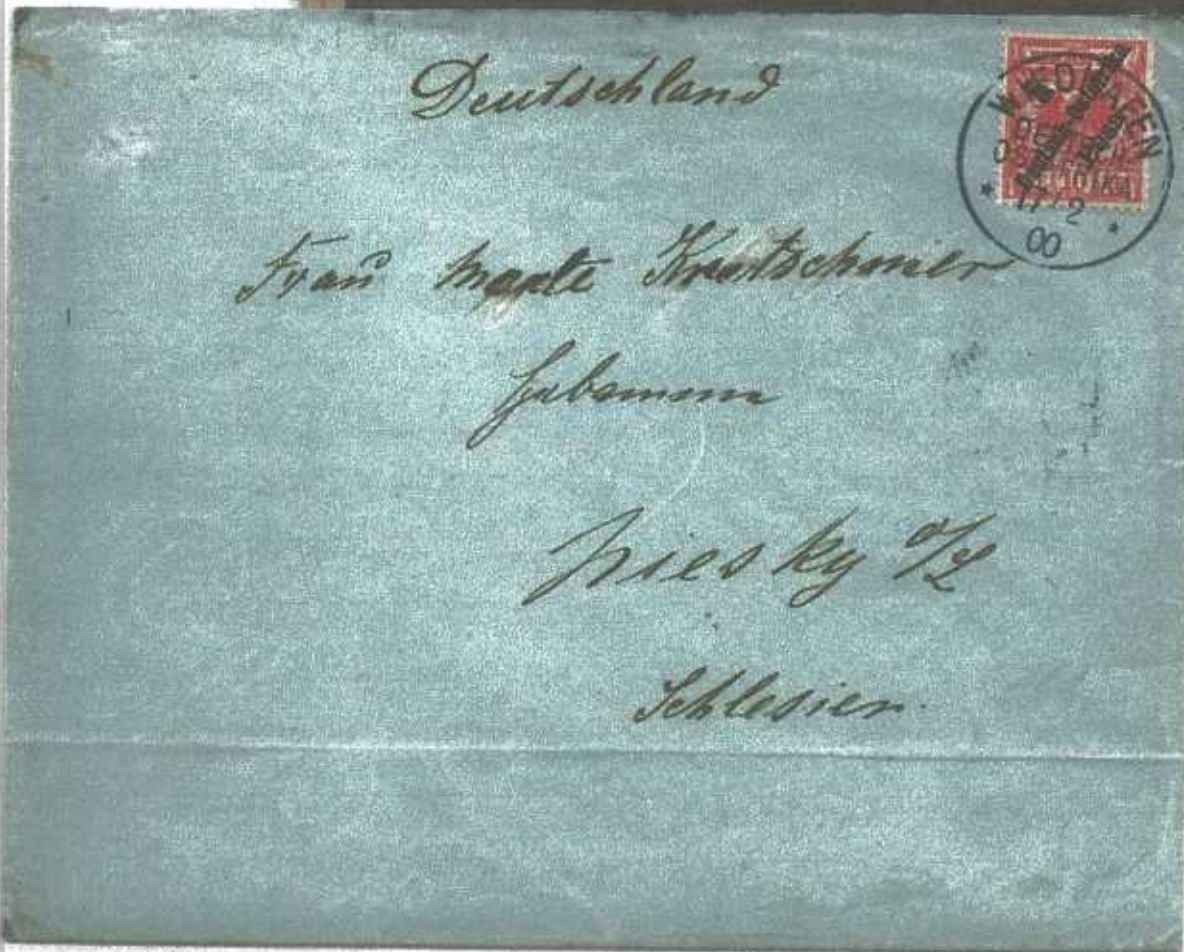 Deutschland
17/2
00
Frau Kretschmer
Hebamme
Niesky O/L
Schlesien.